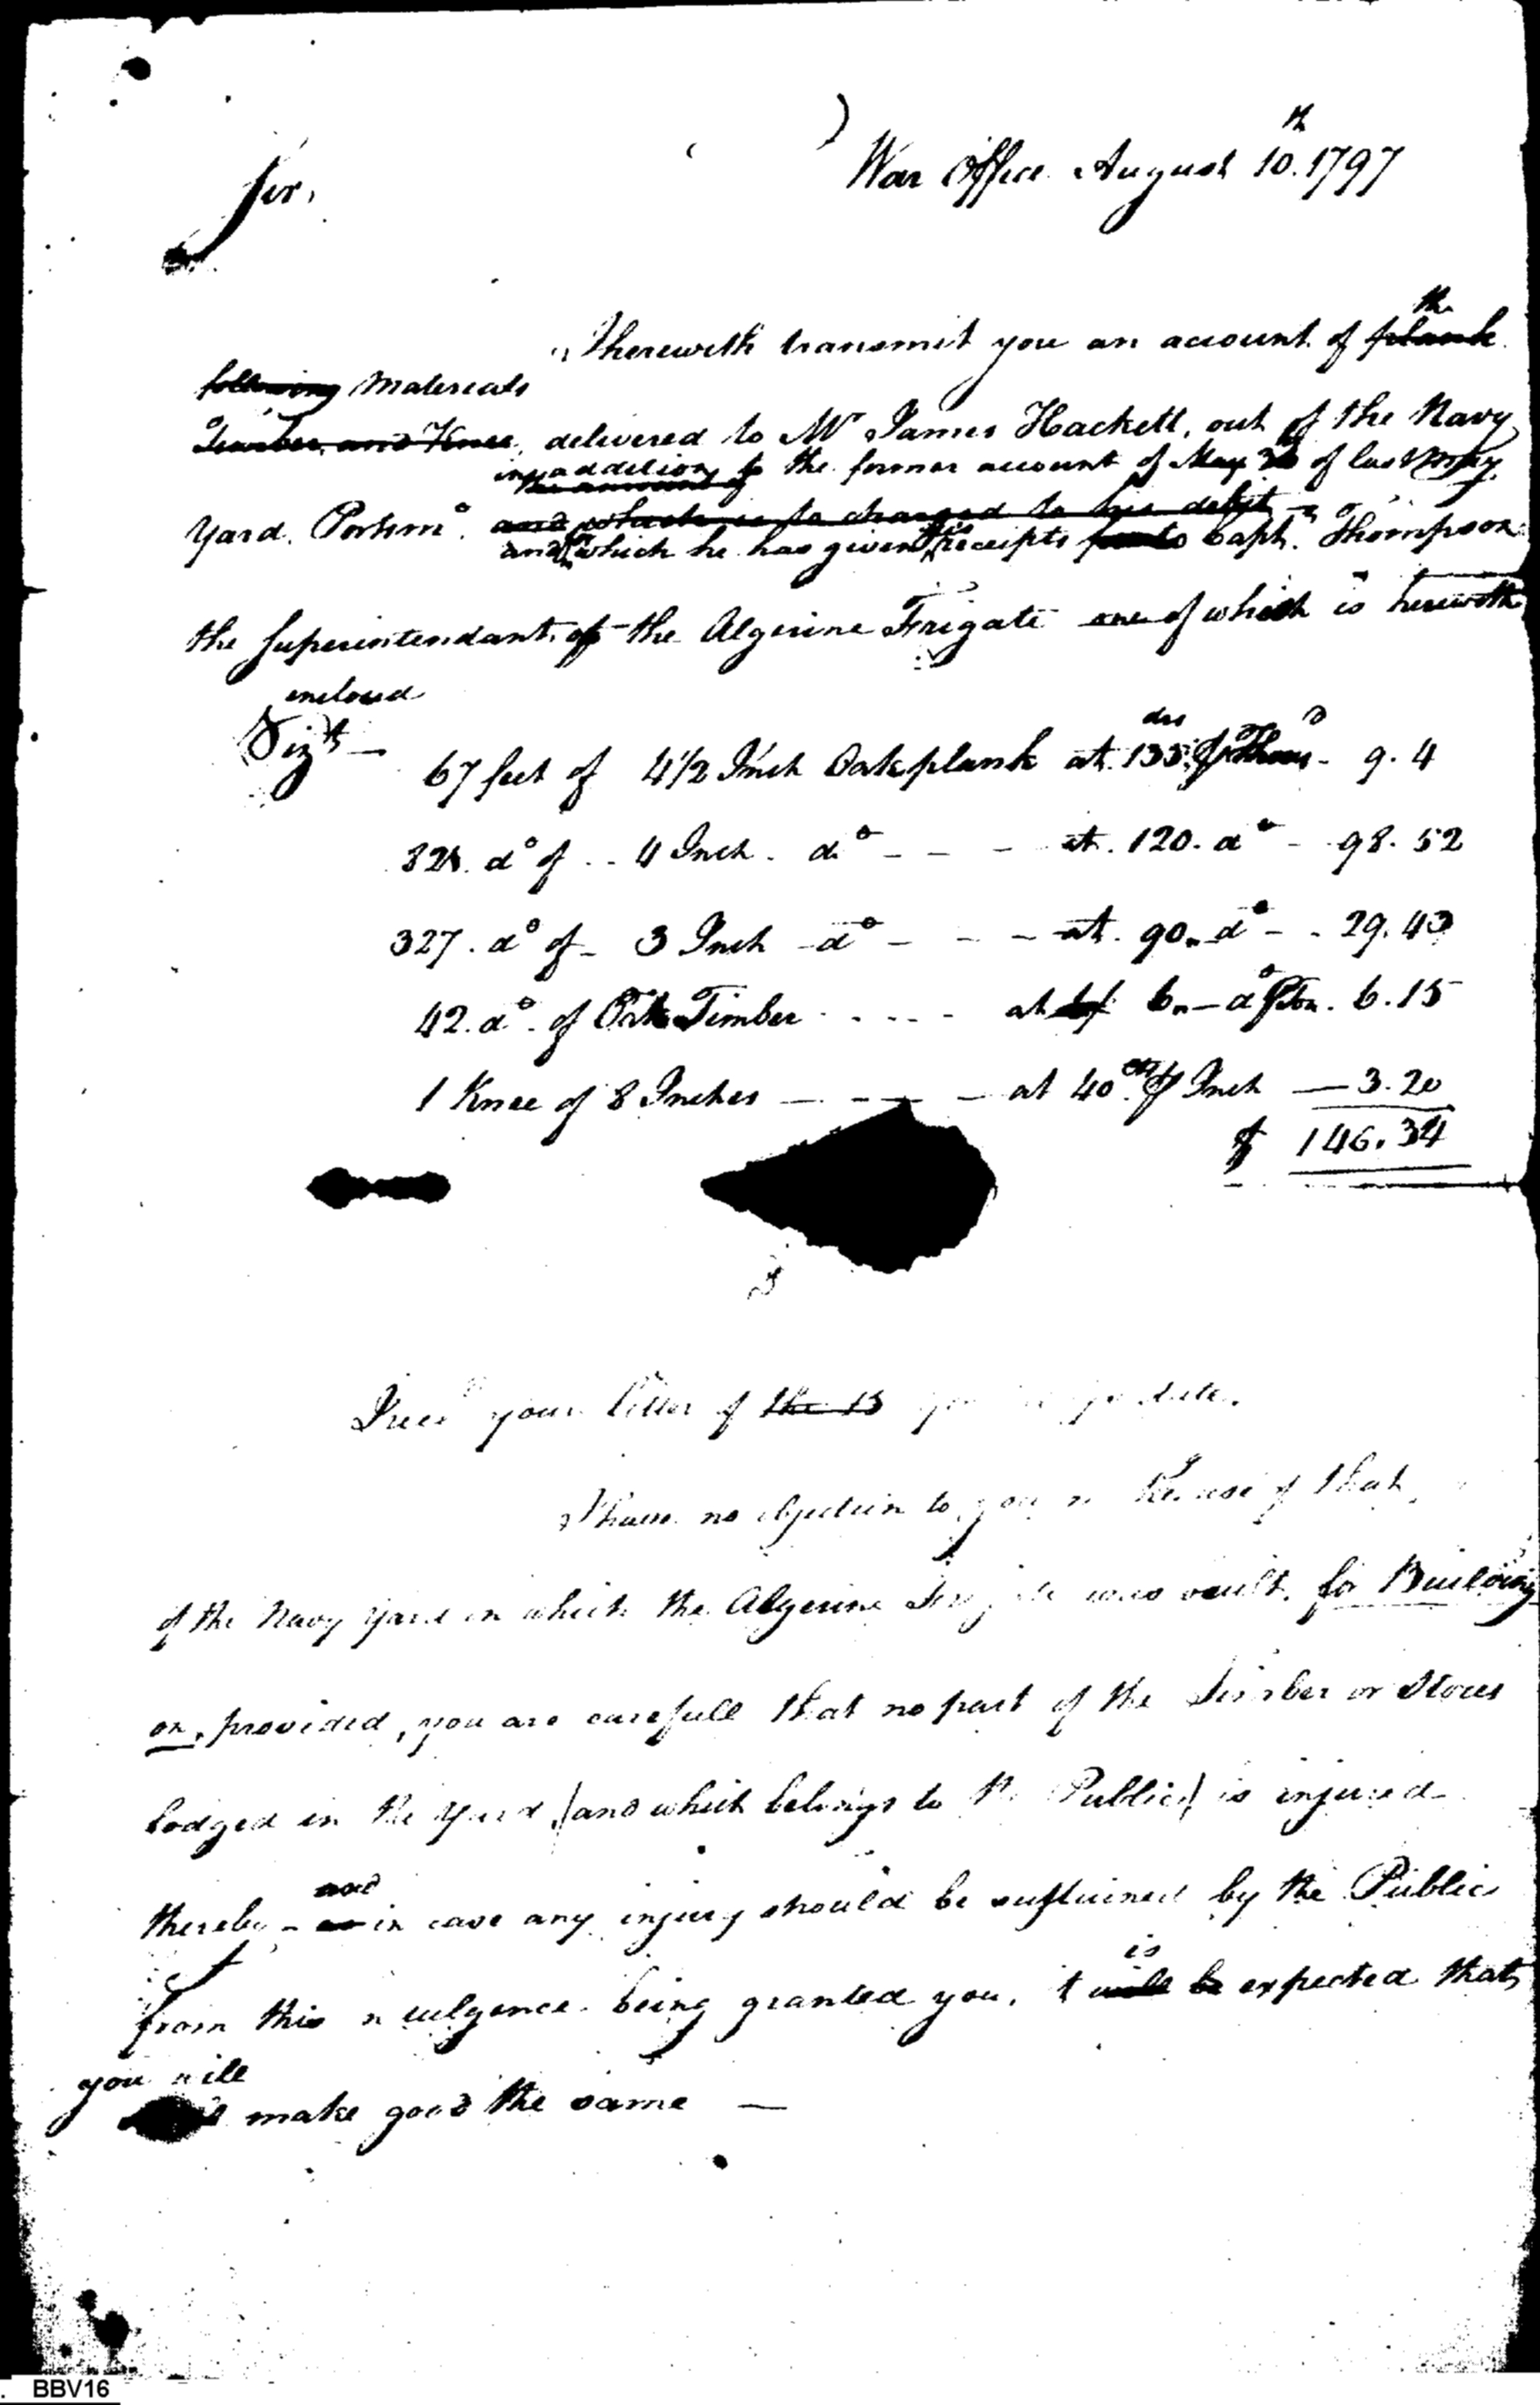 War Office August 10.th 1797
Sir,
I herewith transmit you an account of plank the
following Materials
Timber, and Knee, delivered to Mr James Hackett, out of the Navy
in addition to the former account of May of last May
the amount of
Yard. Portsmo. and which is to charged to his debit
and which he has given receipts to Capt. Thompson
the Superintendant of the Algerine Frigate one of which is herewith
enclosed
Vizt —
67 feet of 4 1/2 Inch Oak plank at 135 drs P Thousd - 9. 4
821. do of .. 4 Inch. do - - - at. 120. do - 98. 52
327. do of - 3 Inch - do - - - at. 90. do - . 29. 43
42. do. of Oak Timber . . . . at 6. — do P Ton. 6. 15
1 Knee of 8 Inches — - - - - at 40 cts P Inch — 3. 20
$ 146. 34
I recd your letter of the 15 date.
I have no objection to the use of that
of the Navy Yard in which the Algerine was built. for Building
on, provided, you are carefull that no part of the Timber or Stores
lodged in the Yard, (and which belongs to the Public) is injured
thereby - and in case any injury should be sustained by the Public
from this indulgence being granted you, it is will be expected that
you will
make good the same —
BBV16